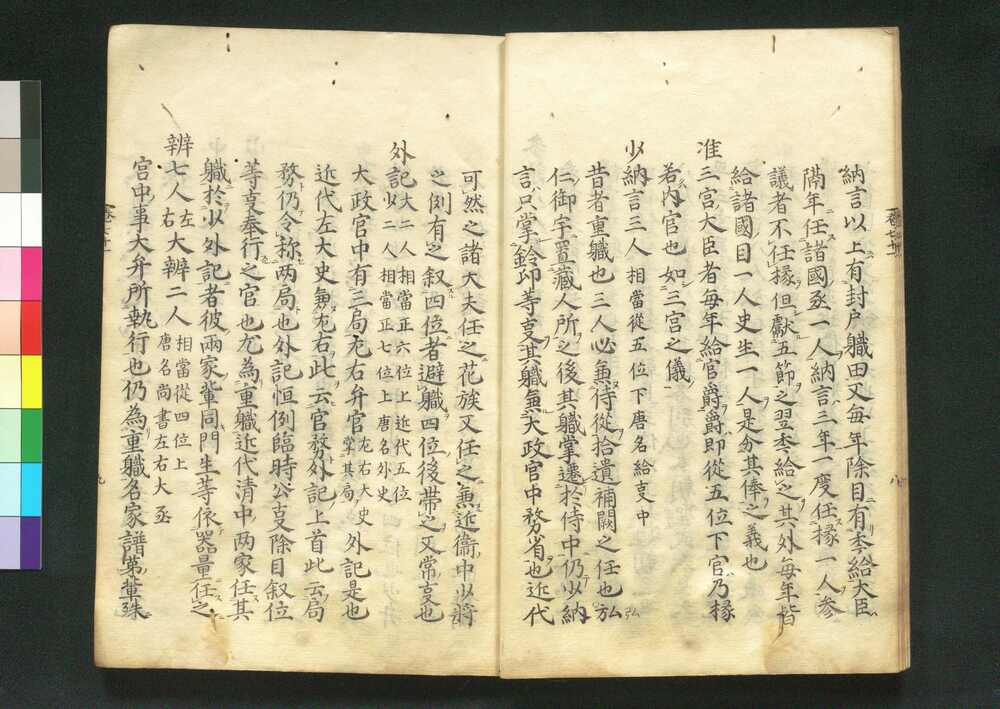 納言以上有封戸職田又毎年除目有季給大臣
隔年任諸國丞一人納言三年一度任掾一人参
議者不任掾但献五節之翌季給之其外毎年皆
給諸國目一人史生一人是分其俸之義也
准三宮大臣者毎年給官爵爵即從五位下官乃掾
若内官也如三宮之儀
少納言三人相當從五位下唐名給亊中
昔者重職也三人必兼侍從拾遺補闕之任也弘
仁御宇置藏人所之後其職掌遷於侍中仍少納
言只掌鈴印等亊其職兼大政官中務省也近代
可然之諸大夫任之花族又任之兼近衛中少將
之例有之叙四位者避職四位後帯之又常亊也
外記大二人相當正六位上近代五位
少二人相當正七位上唐名外史
大政官中有三局左右弁官左右大史掌其局外記是也
近代左大史兼左右此云官務外記上首此云局
務仍令称两局也外記恒例臨時公亊除目叙位
等亊奉行之官也尤為重職近代清中两家任其
職於少外記者彼兩家輩同門生等依器量任之
辨七人左右大辨二人相當從四位上唐名尚書左右大丞
宮中事大弁所執行也仍為重職名家譜第輩殊
卷七十二
八
九